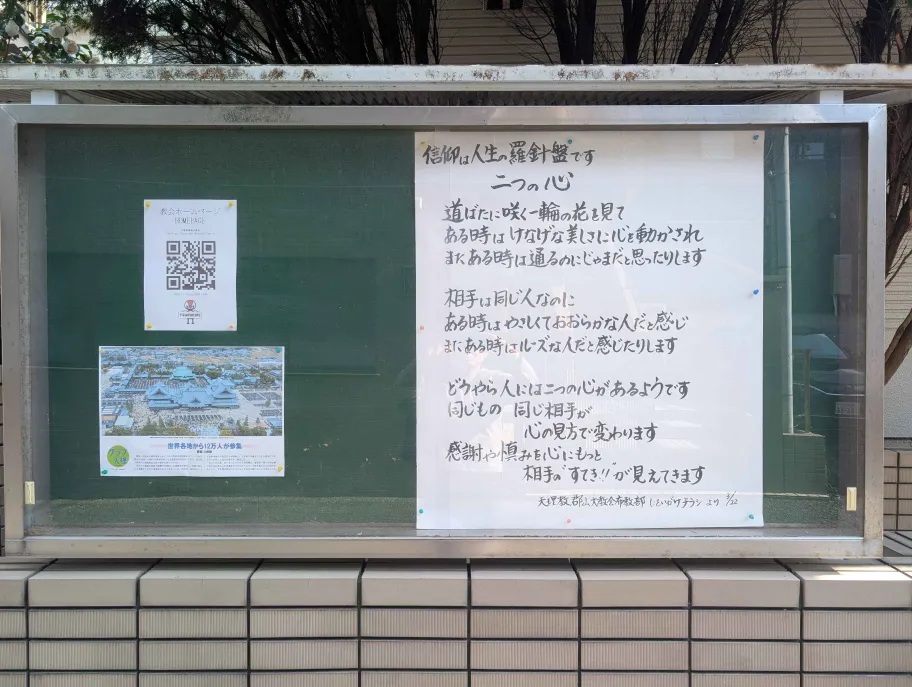 教会ホームページ
HOMEPAGE
世界各地から12万人が参集
信仰は人生の羅針盤です
二つの心
道ばたに咲く一輪の花を見て
ある時は けなげな美しさに心を動かされ
またある時は通るのにじゃまだと思ったりします
相手は同じ人なのに
ある時は やさしくておおらかな人だと感じ
またある時はルーズな人だと感じたりします
どうやら 人には二つの心があるようです
同じもの 同じ相手が
心の見方で変わります
感謝や慎みを心にもっと
相手の"すてき!!"が見えてきます
天理教 郡山大教会布教部 においがけチラシ より 3/22